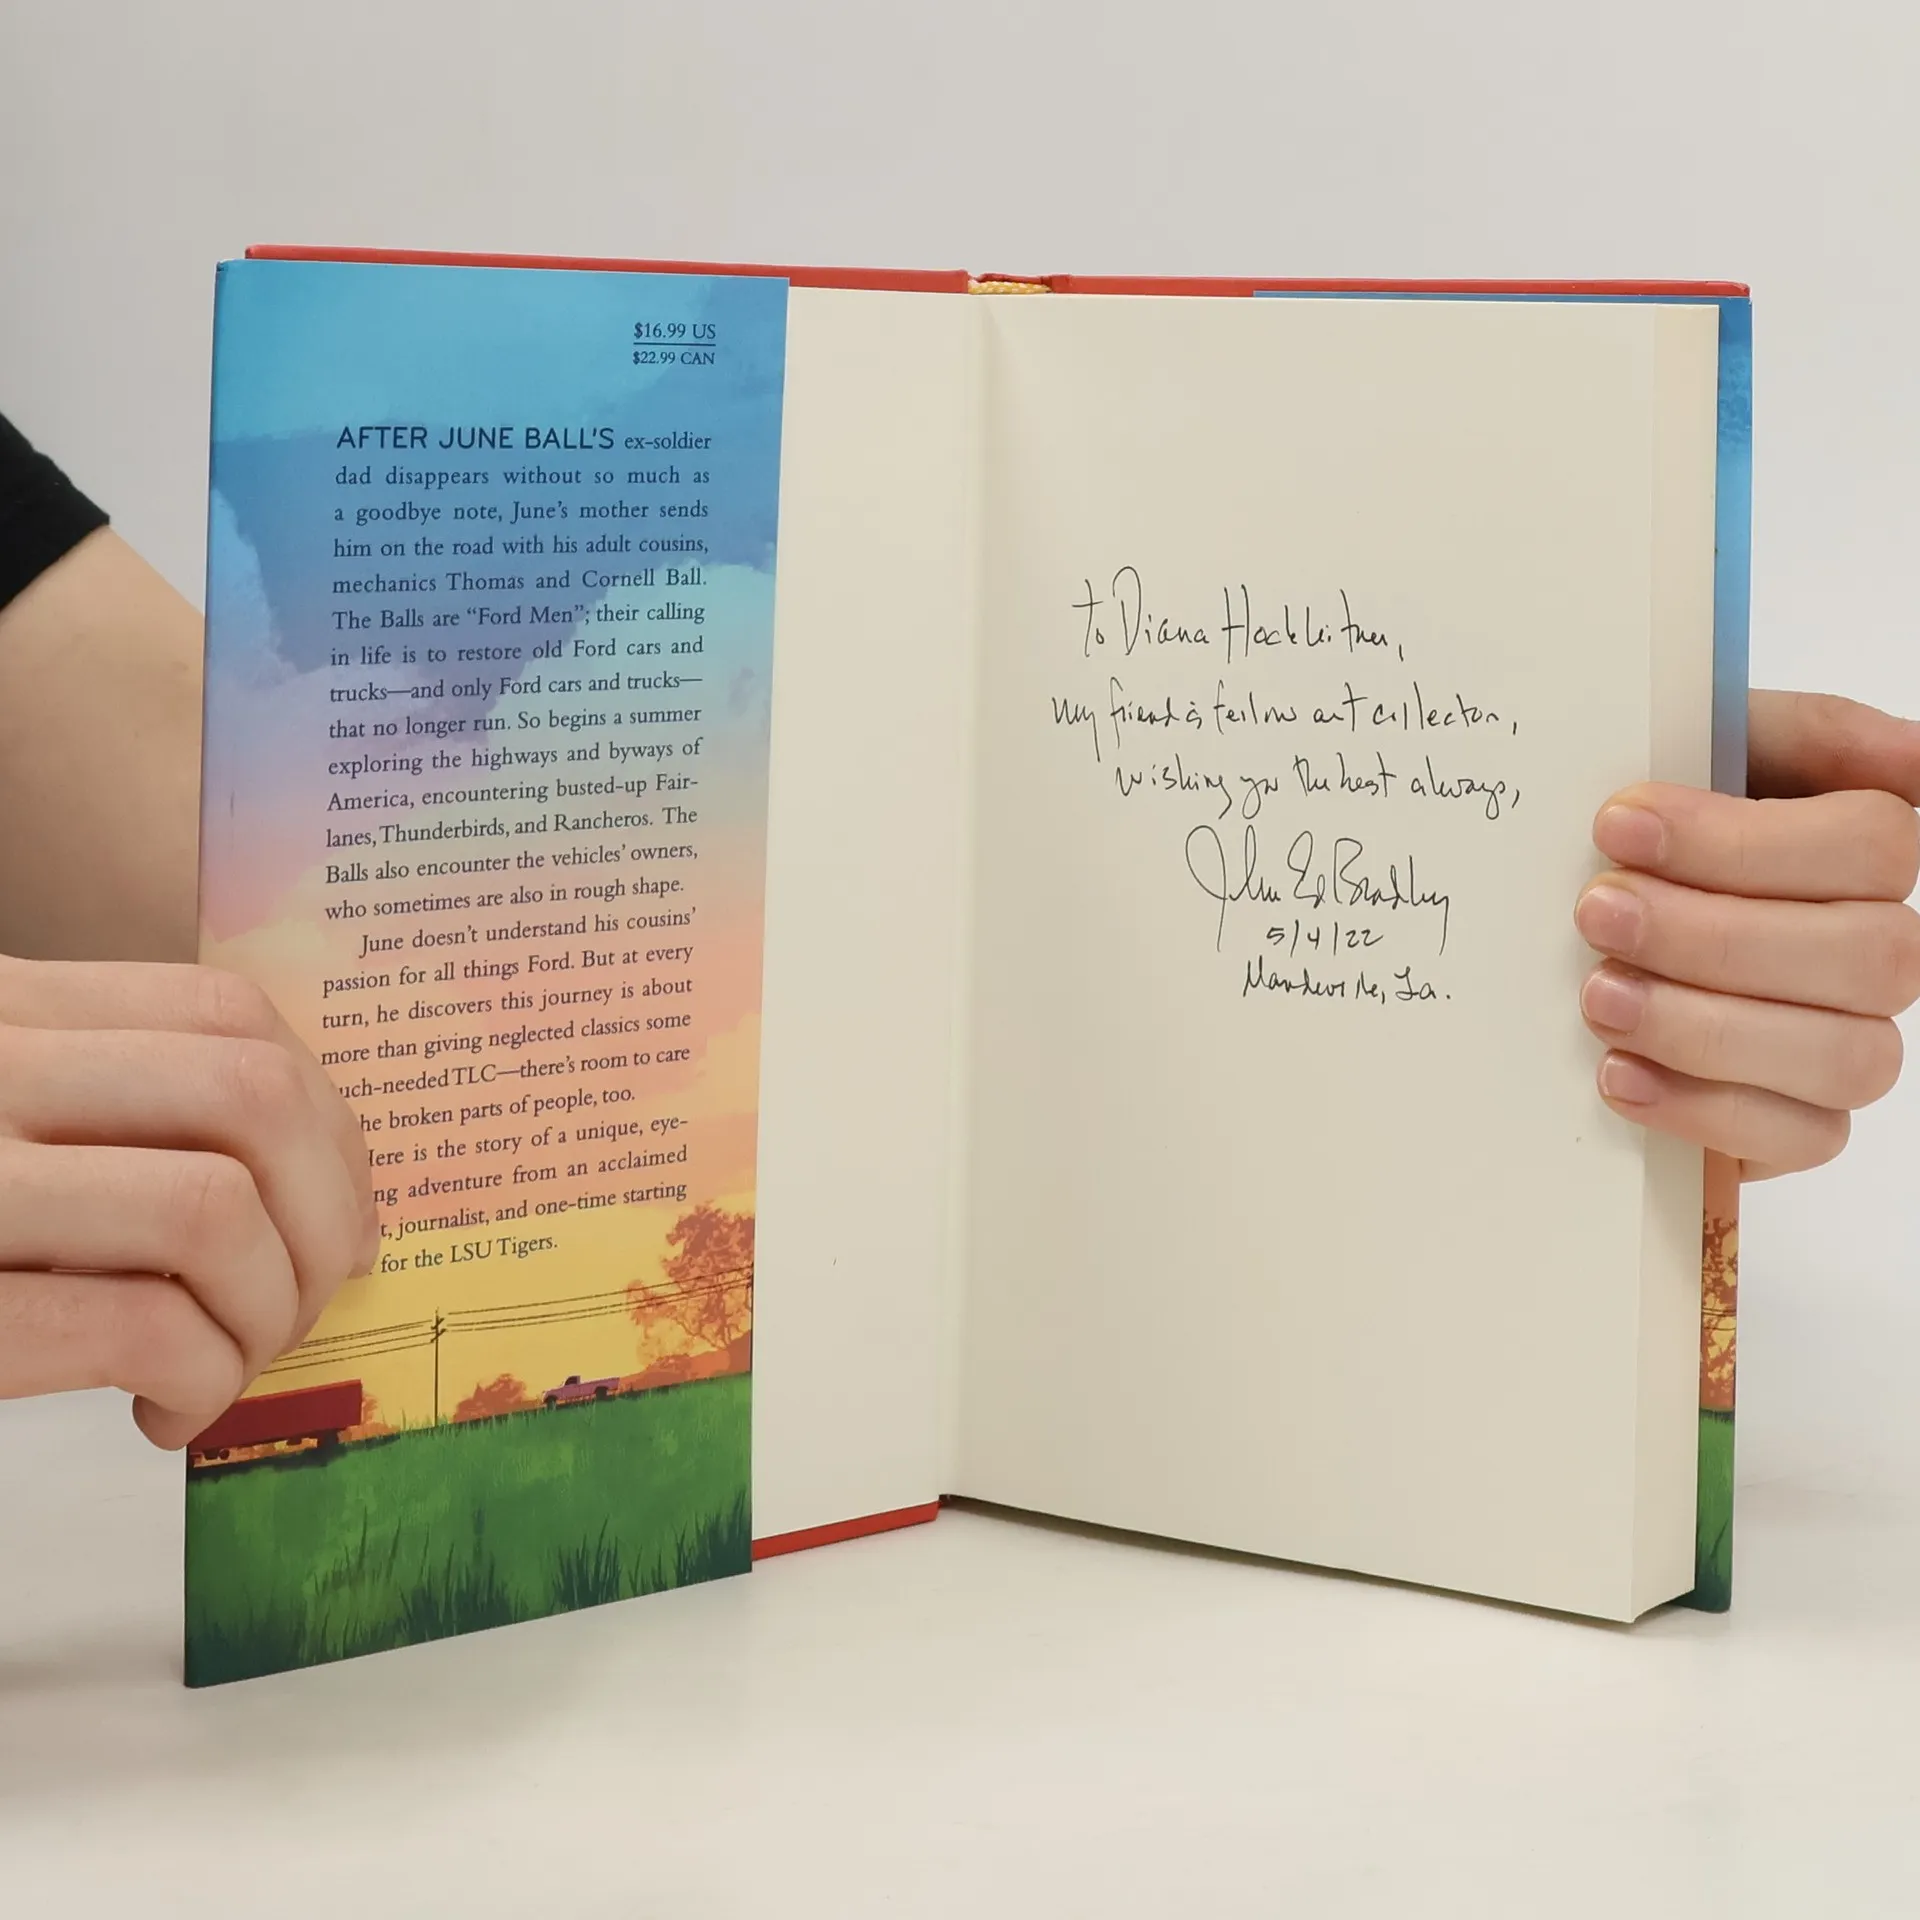 $16.99 US
$22.99 CAN
AFTER JUNE BALL'S ex-soldier
dad disappears without so much as
a goodbye note, June's mother sends
him on the road with his adult cousins,
mechanics Thomas and Cornell Ball.
The Balls are “Ford Men”; their calling
in life is to restore old Ford cars and
trucks—and only Ford cars and trucks—
that no longer run. So begins a summer
exploring the highways and byways of
America, encountering busted-up Fair-
lanes, Thunderbirds, and Rancheros. The
Balls also encounter the vehicles' owners,
who sometimes are also in rough shape.
June doesn't understand his cousins'
passion for all things Ford. But at every
turn, he discovers this journey is about
more than giving neglected classics some
uch-needed TLC—there's room to care
he broken parts of people, too.
Here is the story of a unique, eye-
ng adventure from an acclaimed
t, journalist, and one-time starting
for the LSU Tigers.
To Diana Hockleitner,
my friend & fellow art collector,
wishing you the best always,
John Ed Bradley
5/4/22
Mandeville, La.